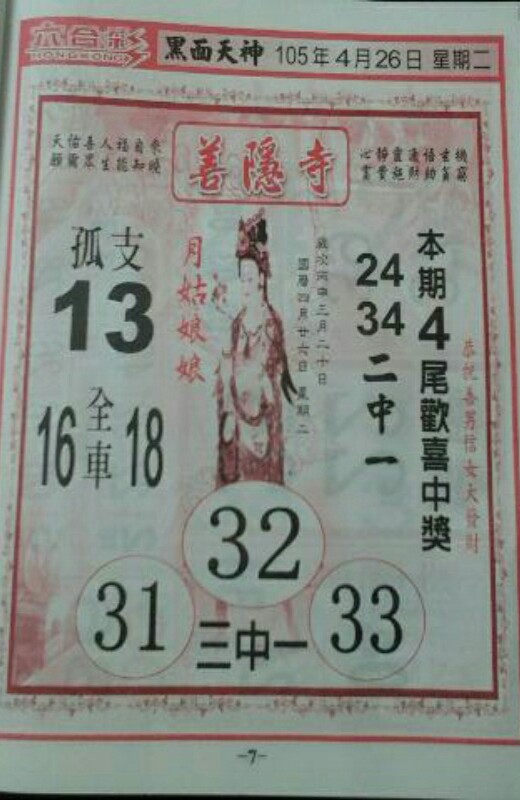 六合彩
HONGKONG
黑面天神 105年4月26日 星期二
善隱寺
天佑喜人福自來
願爾眾生能知曉
心靜靈通悟玄機
本期4尾歡喜中獎
24
34
二中一
恭祝善男信女大發財
歲次丙申三月二十日
國曆四月廿六日 星期二
月姑娘娘
孤支
13
全車
16 18
32
31 33
三中一
-7-